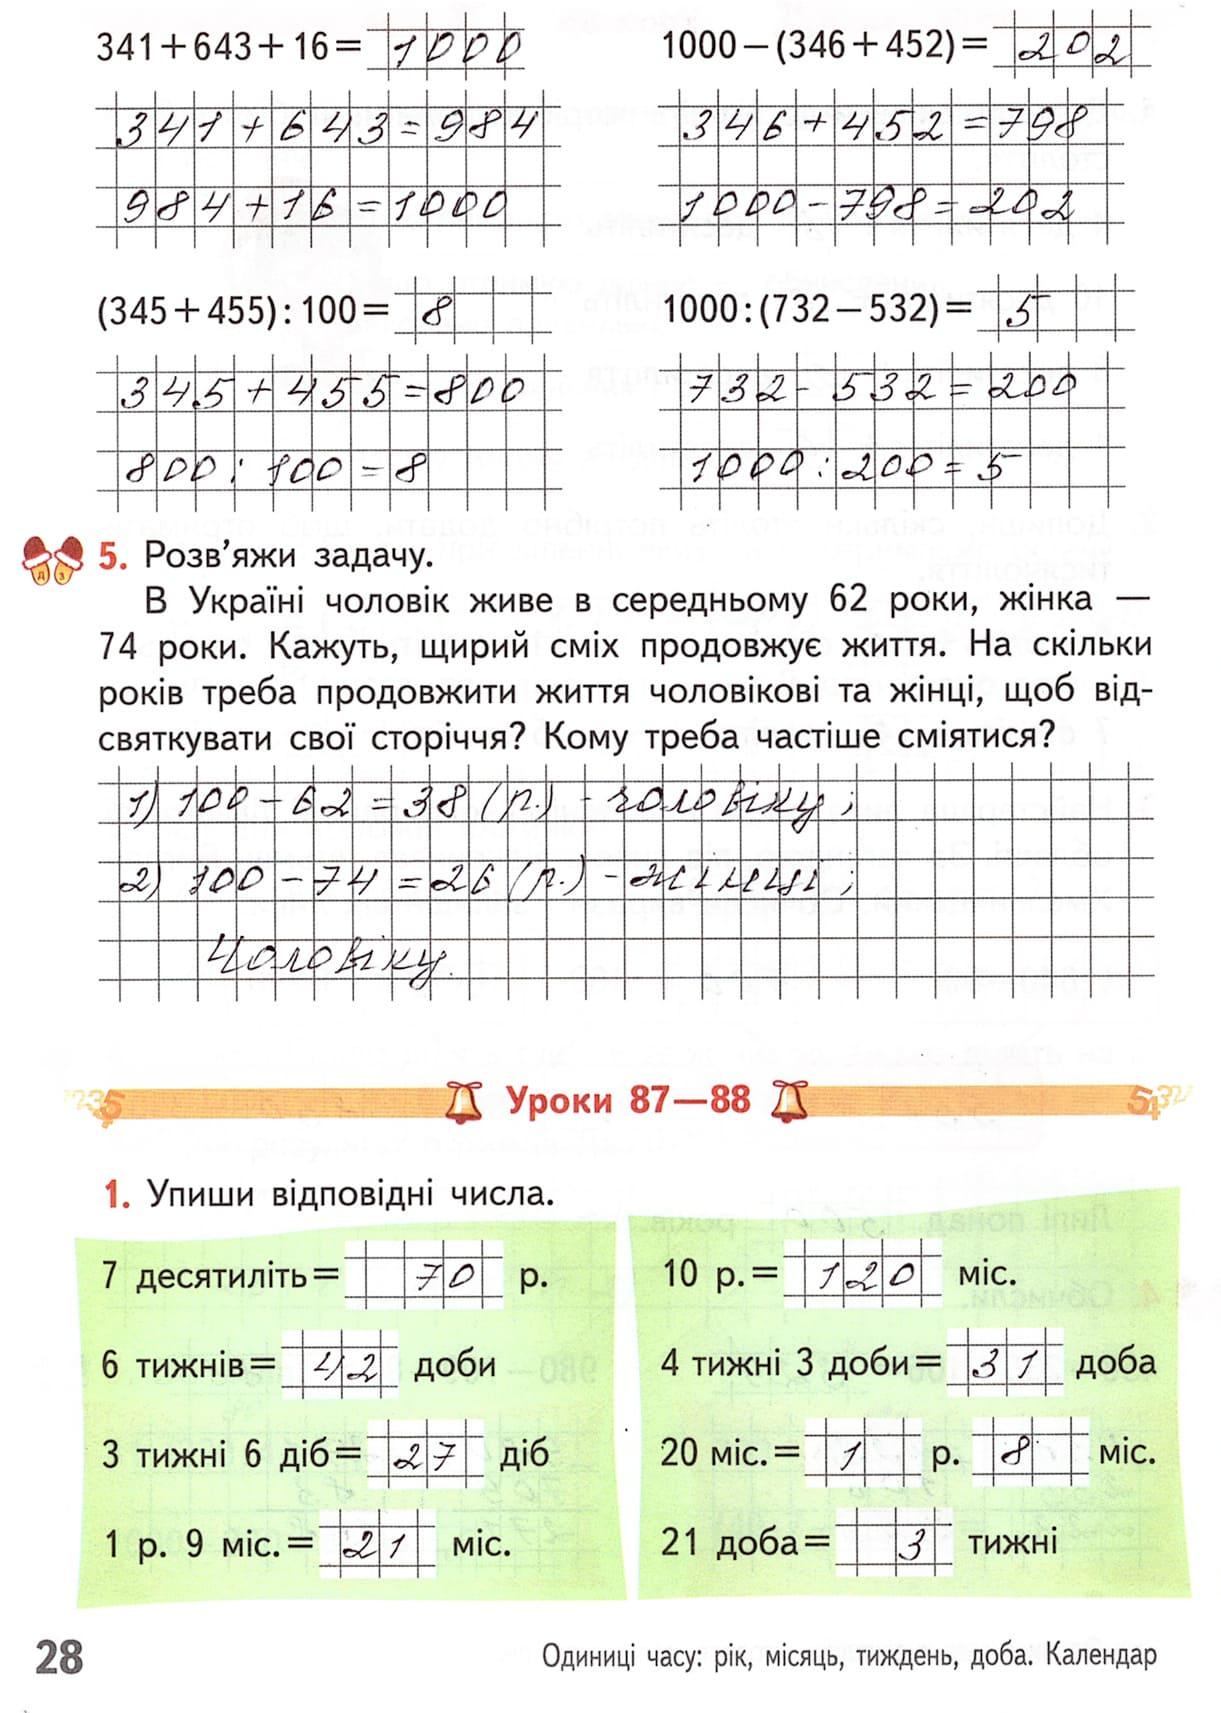 341 + 643 + 16 = 1000
341 + 643 = 984
984 + 16 = 1000
1000 – (346 + 452) = 202
346 + 452 = 798
1000 - 798 = 202
(345 + 455) : 100 = 8
345 + 455 = 800
800 : 100 = 8
1000 : (732 – 532) = 5
732 - 532 = 200
1000 : 200 = 5
5. Розв’яжи задачу.
В Україні чоловік живе в середньому 62 роки, жінка —
74 роки. Кажуть, щирий сміх продовжує життя. На скільки
років треба продовжити життя чоловікові та жінці, щоб від-
святкувати свої сторіччя? Кому треба частіше сміятися?
1) 100 - 62 = 38 (р.) - чоловіку;
2) 100 - 74 = 26 (р.) - жінці;
Чоловіку.
Уроки 87—88
1. Упиши відповідні числа.
7 десятиліть = 70 р.
6 тижнів = 42 доби
3 тижні 6 діб = 27 діб
1 р. 9 міс. = 21 міс.
10 р. = 120 міс.
4 тижні 3 доби = 31 доба
20 міс. = 1 р. 8 міс.
21 доба = 3 тижні
28
Одиниці часу: рік, місяць, тиждень, доба. Календар